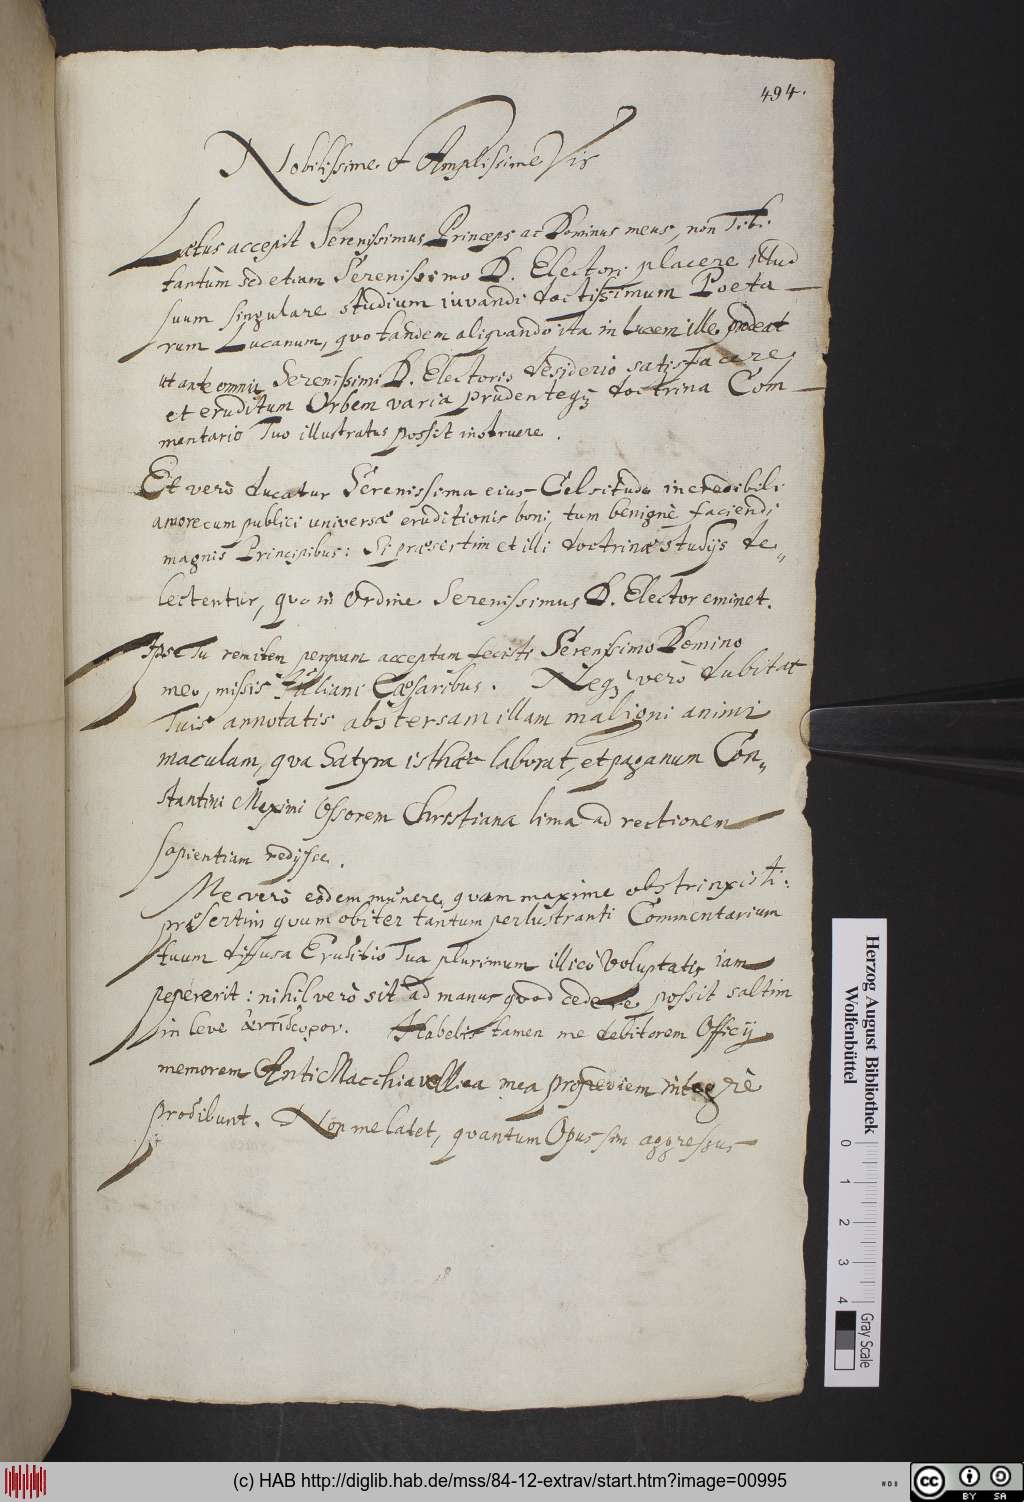 494.
Nobilissime & Amplissime Vir
Laetus accepit Serenissimus Princeps ac Dominus meus, non Tibi
tantùm sed etiam Serenissimo D. Electori placere istud
suum singulare studium iuvandi doctissimum Poeta-
rum Lucanum, quo tandem aliquando ita in lucem ille prodeat
ut ante omnia Serenissimi D. Electoris desiderio satisfacere
et eruditum Orbem varia prudenteq3 doctrina Com-
mentario Tuo illustratus possit instruere.
Et verò ducatur Serenissima eius Celsitudo incredibili
amore cum publici universae eruditionis boni, tum benignè faciendi
magnis Principibus: Si praesertim et illi doctrinae studijs de„
lectentur, quo in Ordine Serenissimus D. Elector eminet.
Ipse Tu remitem perquam acceptam fecisti Serenissimo Domino
meo, missis Iuliani Caesaribus. Neq3 verò dubitat
Tuis annotatis abstersam illam maligni animi
maculam, qua Satyra isthaec laborat, et paganum Con„
stantini Maximi Osorem Christiana lima ad rectionem
sapientiam redijsse.
Me verò eodem munere quam maxime obstrinxisti:
praesertim quum obiter tantum perlustranti Commentarium
tuum diffusa Eruditio Tua plurimum illicò Voluptatis iam
pepererit: nihil verò sit ad manus quod cedere possit saltim
in leve ἀντίδωρον. Habebis tamen me debitorem Officij
memorem Anti Macchiavellica mea propediem integrè
prodibunt. Non me latet, quantum Opus sim aggressus
Herzog August Bibliothek
Wolfenbüttel
0 1 2 3 4
Gray Scale
(c) HAB http://diglib.hab.de/mss/84-12-extrav/start.htm?image=00995
cc BY SA